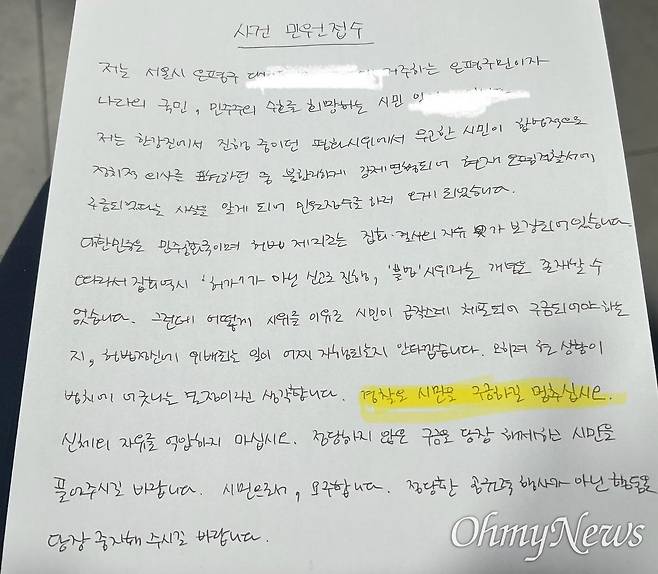 사건 민원 접수
저는 서울시 은평구 거주하는 은평구민이자
나라의 국민, 민주주의 수호를 희망하는 시민
저는 한강진에서 진행 중이던 평화시위에서 무고한 시민이 합법적으로
정치적 의사를 표현하던 중 불합리하게 강제연행되어 현재 은평경찰서에
구금되었다는 사실을 알게 되어 민원접수를 하러 오게 되었습니다.
대한민국은 민주공화국이며 헌법 제21조는 집회·결사의 자유 가 보장되어있습니다.
따라서 집회 역시 '허가'가 아닌 신고로 진행, '불법'시위라는 개념은 존재할 수
없습니다. 그런데 어떻게 시위를 이유로 시민이 급작스레 체포되어 구금되어야하는
지, 헌법정신에 위배되는 일이 어찌 자행되는지 안타깝습니다. 오히려 현 상황이
법치에 어긋나는 현장이라고 생각합니다. 경찰은 시민을 구금하길 멈추십시오.
신체의 자유를 억압하지 마십시오. 정당하지 않은 구금을 당장 해제하고 시민을
풀어주시길 바랍니다. 시민으로서, 요구합니다. 정당한 공권력 행사가 아닌 행동을
당장 중지해 주시길 바랍니다.
OhmyNews